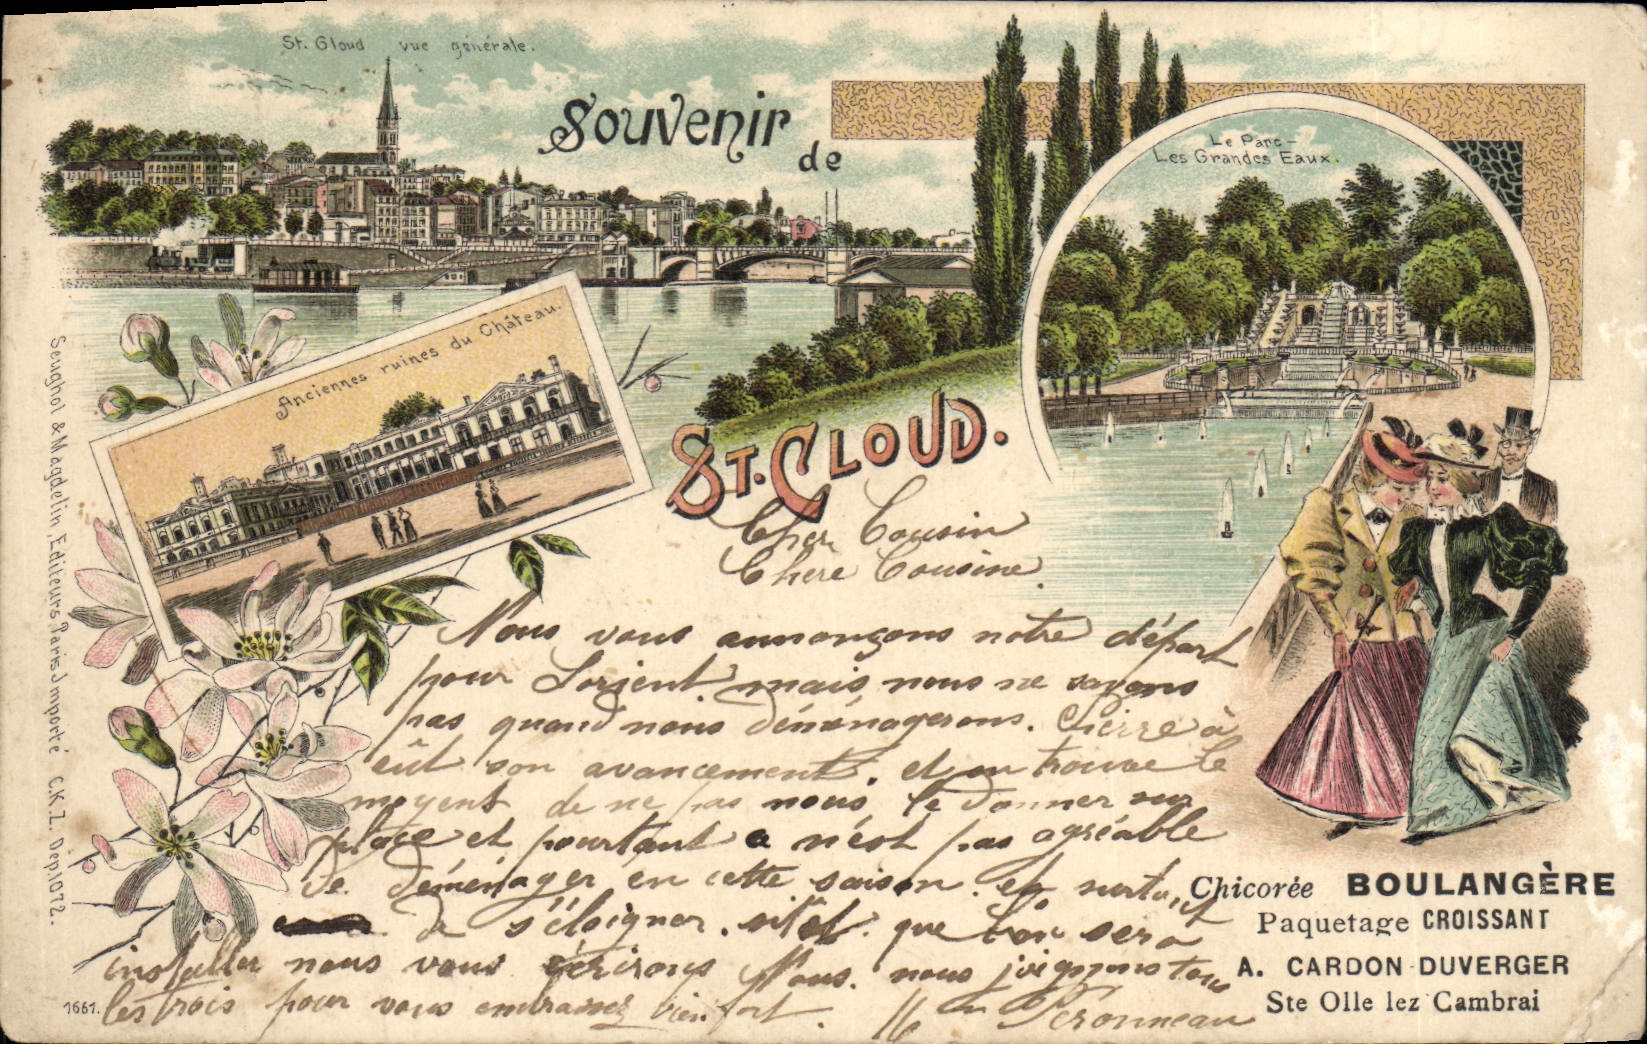 St. Cloud vue générale.
Souvenir
de
St. Cloud.
Le Parc -
Les Grandes Eaux.
Anciennes ruines du Château.
Cher Cousin
Chère Cousine
Nous vous annonçons notre départ
pour Lorient mais nous ne savons
pas quand nous déménagerons. Pierre à
eût son avancement. et on trouve le
moyent de ne pas nous le donner sur
place et pourtant n'est pas agréable
de déménager en cette saison. et surtout
de s'éloigner. sitôt que l'on sera
installer nous vous écrirons Nous nous joignons tous
les trois pour vous embrasser bien fort.
Péronneau
Chicorée BOULANGÈRE
Paquetage CROISSANT
A. CARDON-DUVERGER
Ste Olle lez Cambrai
Seughol & Magdelin, Editeurs Paris Importé C.K.Z. Dep. 1072.
1661.